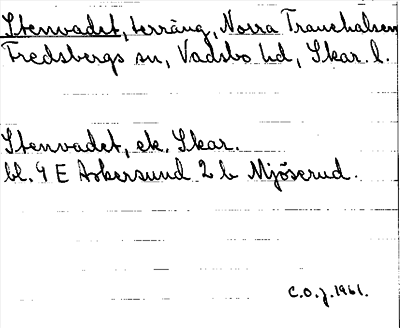 Stenvadet, terräng, Norra Trauchalsen
Fredsbergs sn, Vadsbo hd, Skar. l.
Stenvadet, ek. Skar.
bl. 9 E Askersund 2 b Mjöserud.
C.O.J. 1961.